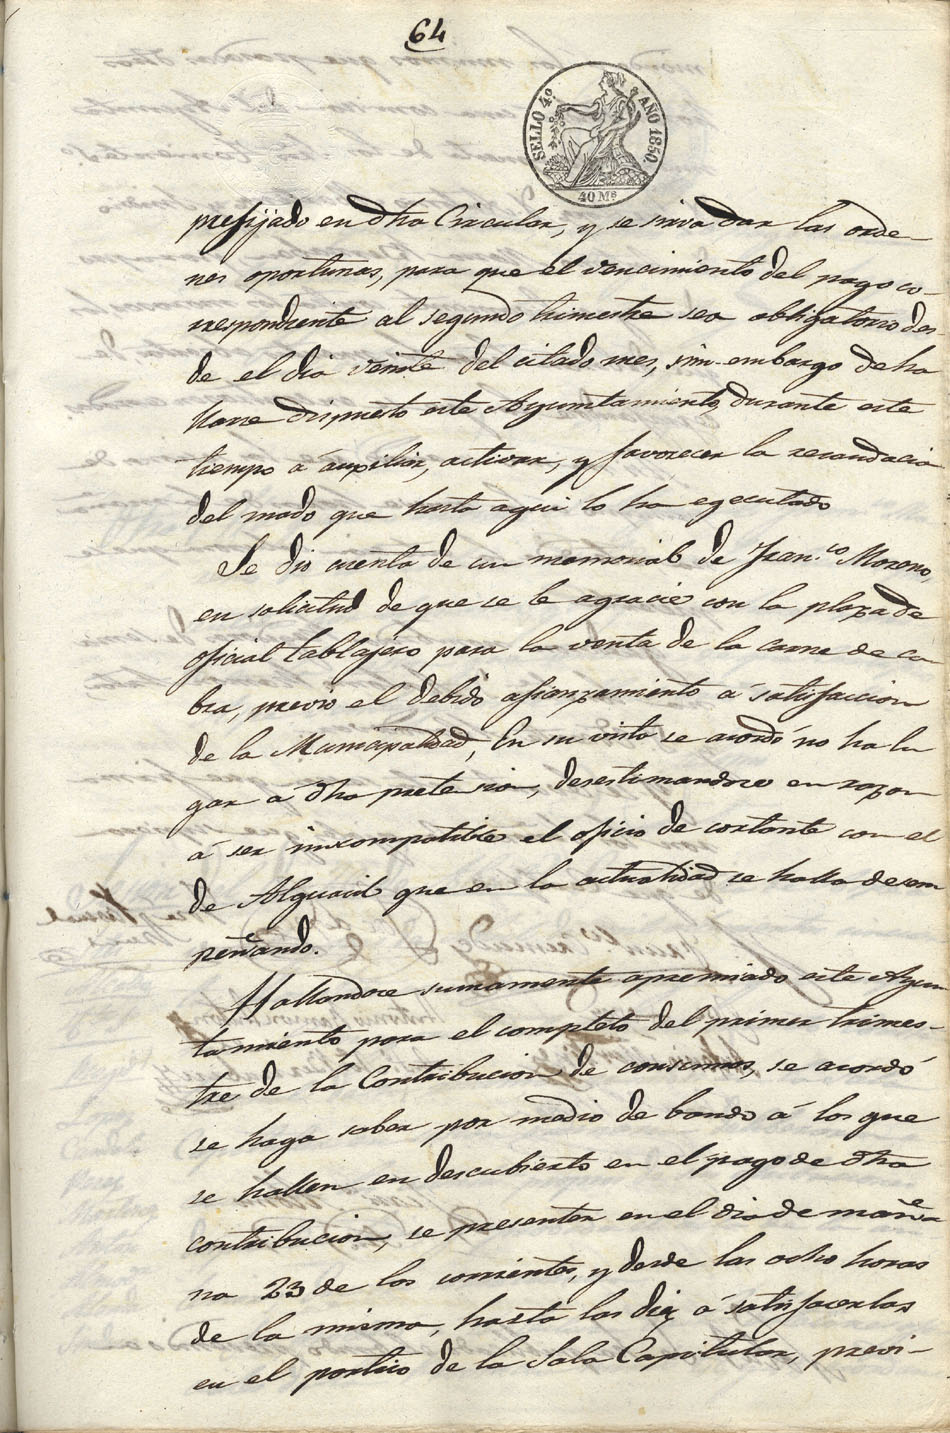 64
SELLO 4º AÑO 1850.
40 Ms
prefijado en dha Circular, y se sirva dar las orde-
nes oportunas, para que el vencimiento del pago co-
rrespondiente al segundo trimestre sea obligatorio des-
de el dia veinte del citado mes, sin embargo de ha
llarse dispuesto este Ayuntamiento, durante este
tiempo a auxiliar, activar, y favorecer la recaudacion
del modo que hasta aqui lo ha egecutado
Se dio cuenta de un memorial de Fran.co Moreno,
en solicitud de que se le agracie con la plaza de
oficial tablajero para la venta de la carne de ca
bra, previo el debido afianzamiento á satisfaccion
de la Municipalidad, En su vista se acordó no ha lu
gar á dha pretesion, desestimandose en razon
á ser incompatible el oficio de cortante con el
de Alguacil que en la actualidad se halla desem
peñando.
Hallandose sumamente apremiado este Ayun
tamiento para el completo del primer trimes-
tre de la Contribucion de consumos, se acordó
se haga saber por medio de bando á los que
se hallen en descubierto en el pago de dha
contribucion, se presenten en el dia de maña
na 23 de los corrientes, y desde las ocho horas
de la misma, hasta las diez á satisfacerlas
en el portico de la Sala Capitular, previ-